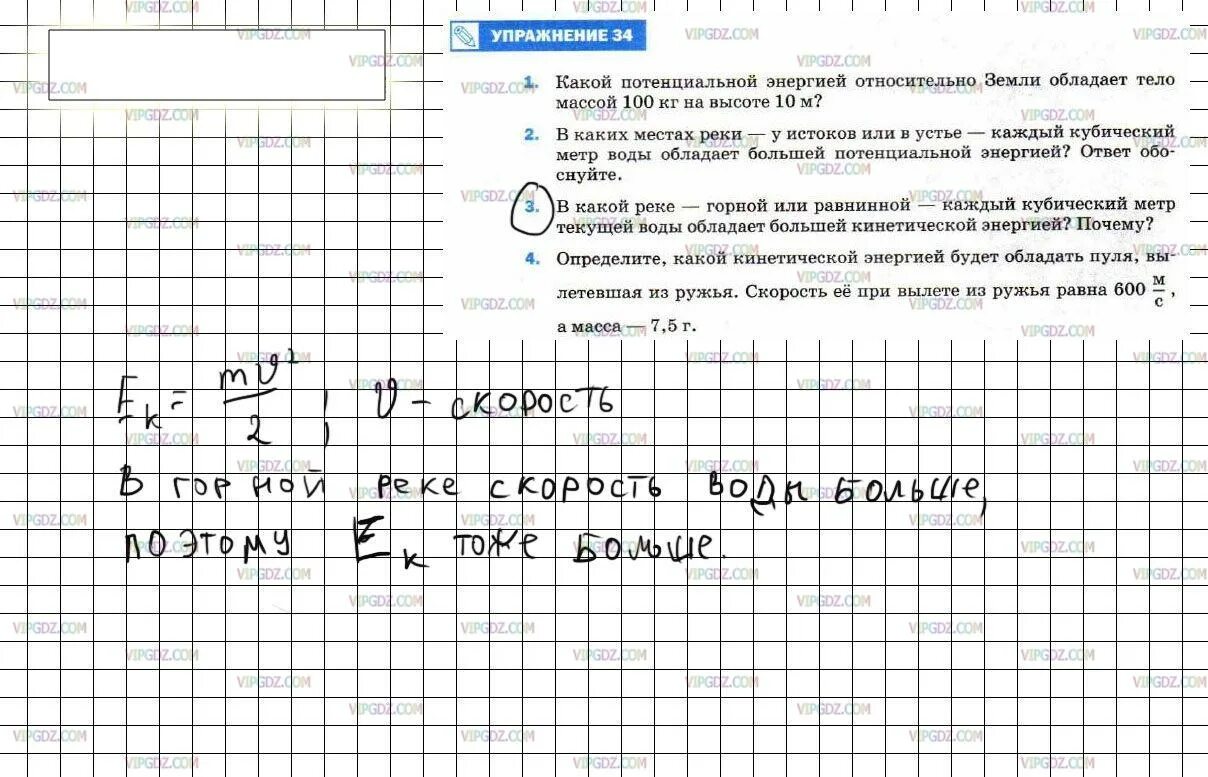 УПРАЖНЕНИЕ 34
1. Какой потенциальной энергией относительно Земли обладает тело
массой 100 кг на высоте 10 м?
2. В каких местах реки — у истоков или в устье — каждый кубический
метр воды обладает большей потенциальной энергией? Ответ обо-
снуйте.
3. В какой реке — горной или равнинной — каждый кубический метр
текущей воды обладает большей кинетической энергией? Почему?
4. Определите, какой кинетической энергией будет обладать пуля, вы-
летевшая из ружья. Скорость её при вылете из ружья равна 600 м/с,
а масса — 7,5 г.
Eк = mυ²/2 ; υ - скорость
В горной реке скорость воды больше,
поэтому Eк тоже больше.
VIPGDZ.COM